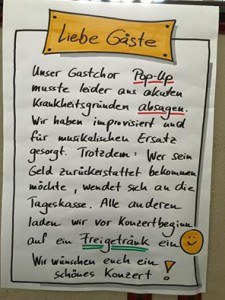 Liebe Gäste
Unser Gastchor Pop-Up
musste leider aus akuten
Krankheitsgründen absagen.
Wir haben improvisiert und
für musikalischen Ersatz
gesorgt. Trotzdem: Wer sein
Geld zurückerstattet bekommen
möchte, wendet sich an die
Tageskasse. Alle anderen
laden wir vor Konzertbeginn
auf ein Freigetränk ein
Wir wünschen euch ein
schönes Konzert!